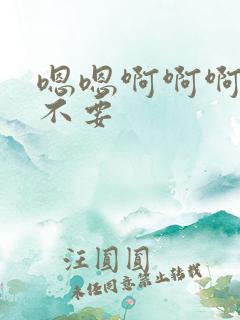 嗯嗯啊啊啊
不要
汪圆圆
未经同意禁止转载